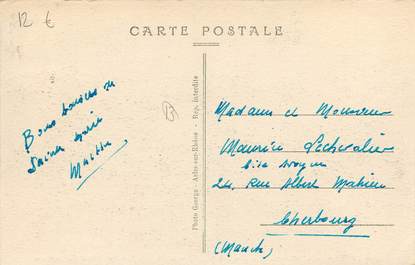 12 €
CARTE POSTALE
Bons baisers de
Sainte Marie
B
Photo George - Arles-sur-Rhône - Rep. interdite
Madame et Monsieur
Maurice Lechevalier
24, Rue Albert Mahieu
Cherbourg
(Manche)